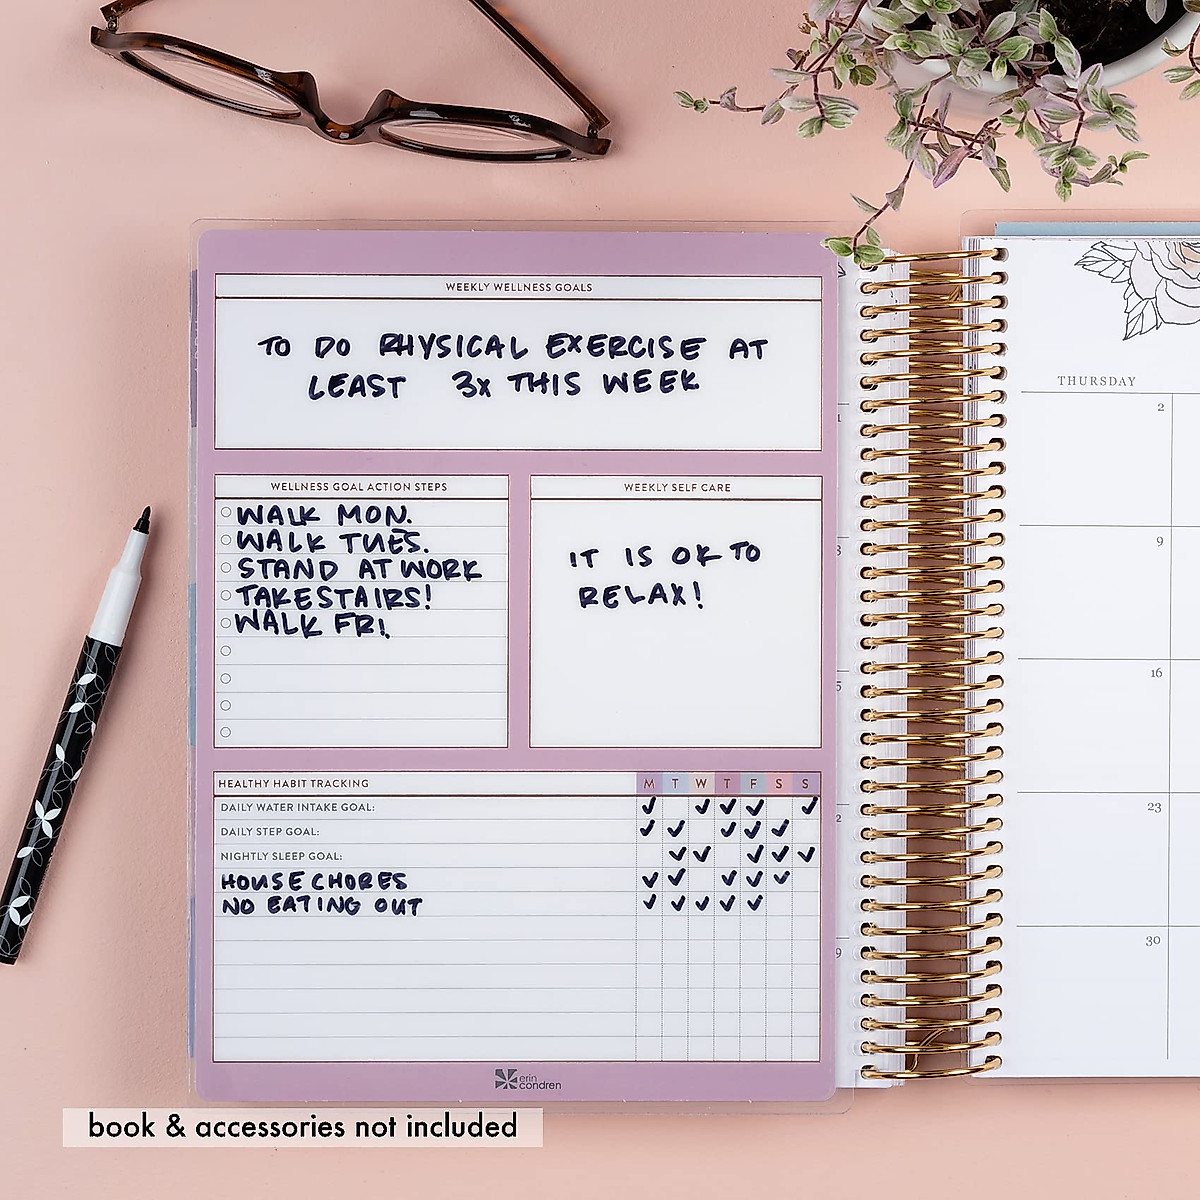 WEEKLY WELLNESS GOALS
TO DO PHYSICAL EXERCISE AT
LEAST 3x THIS WEEK
WELLNESS GOAL ACTION STEPS
WALK MON.
WALK TUES.
STAND AT WORK
TAKE STAIRS!
WALK FRI.
WEEKLY SELF CARE
IT IS OK TO
RELAX!
HEALTHY HABIT TRACKING M T W T F S S
DAILY WATER INTAKE GOAL: ✓ ✓ ✓ ✓ ✓
DAILY STEP GOAL: ✓ ✓ ✓ ✓ ✓
NIGHTLY SLEEP GOAL: ✓ ✓ ✓ ✓ ✓
HOUSE CHORES ✓ ✓ ✓ ✓ ✓
NO EATING OUT ✓ ✓ ✓ ✓ ✓
erin
condren
THURSDAY
2
9
16
23
30
book & accessories not included